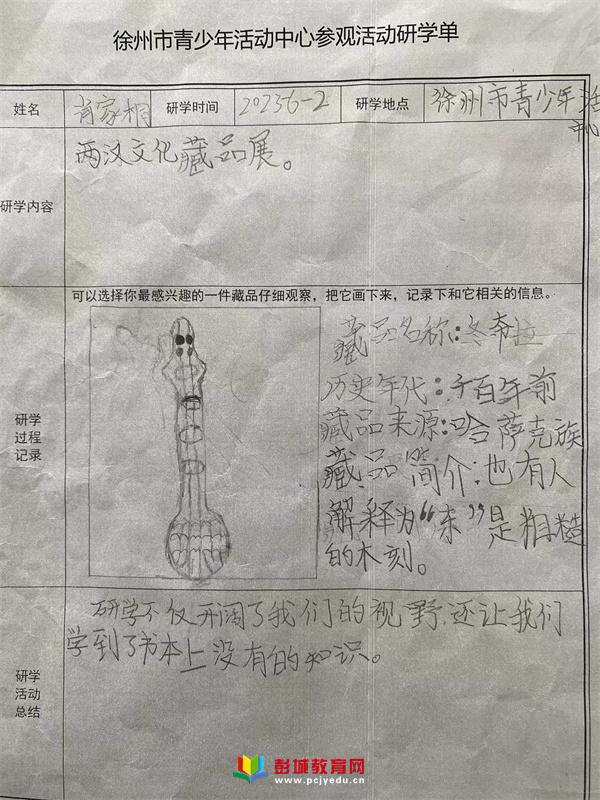 徐州市青少年活动中心参观活动研学单
姓名 肖家桐 研学时间 20236-2 研学地点 徐州市青少年活
中心
研学内容
两汉文化藏品展。
可以选择你最感兴趣的一件藏品仔细观察，把它画下来，记录下和它相关的信息。
研学
过程
记录
藏品名称：冬布拉
历史年代：千百年前
藏品来源：哈萨克族
藏品简介：也有人
解释为“东”是粗糙
的木刻。
研学
活动
总结
研学不仅开阔了我们的视野，还让我们
学到了书本上没有的知识。
彭城教育网
www.pcjyedu.cn